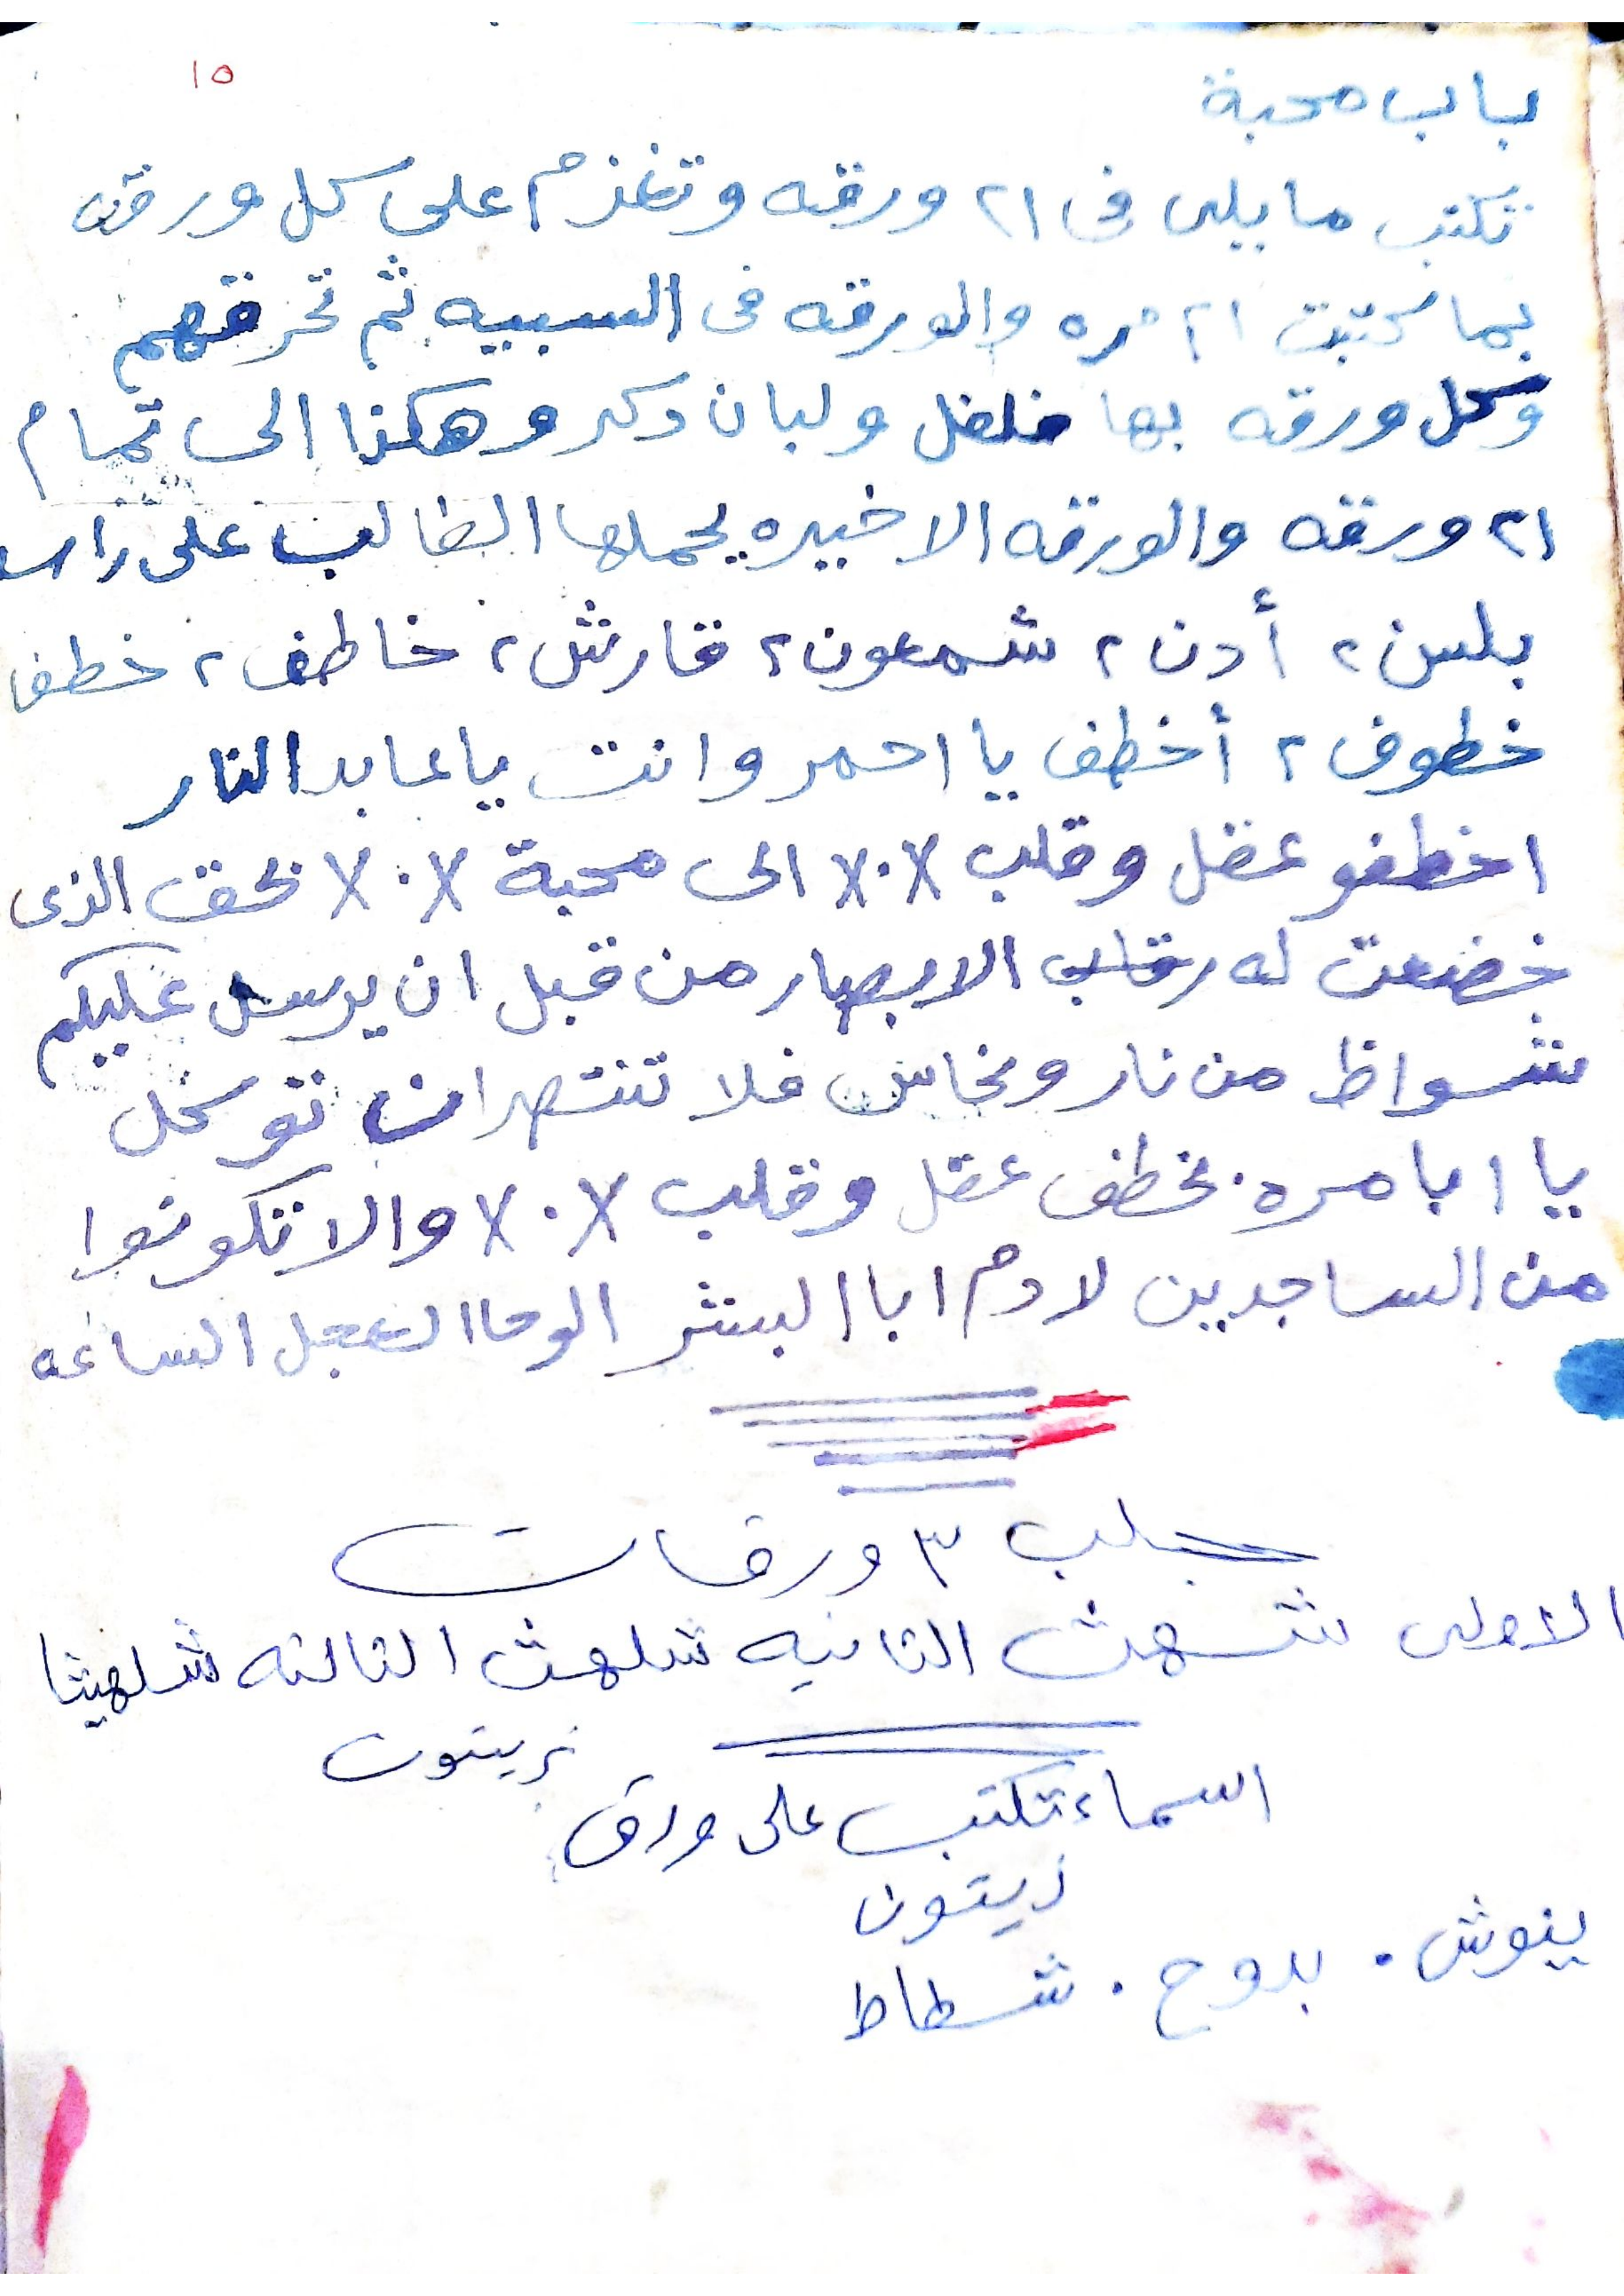 ١٥
باب محبة
تكتب ما يلى فى ٢١ ورقه وتعزم على كل ورقه
بما كتبت ٢١ مره والورقه فى السبيبه ثم تحرقهم
وكل ورقه بها فلفل ولبان دكر وهكذا الى تمام
٢١ ورقه والورقه الاخيره يحملها الطالب على راس
بلس ٢ أدن ٢ شمعون ٢ قارش ٢ خاطف ٢ خطفا
خطوف ٢ أخطف يا احمر وانت يا عابد النار
اخطفو عقل وقلب ٪ ٪ الى محبة ٪ ٪ بحق الذى
خضعت له رقاب الابصار من قبل ان يرسل عليكم
شواظ من نار ونحاس فلا تنتصران توكل
يا ابا مره بخطف عقل وقلب ٪ ٪ والا تكونوا
من الساجدين لادم ابا البشر الوحا العجل الساعه
جلب ٣ ورقات
الاولى شهت الثانيه شلهت الثالثه شلهيثا
اسماء تكتب على ورق زيتون
زيتون
ينوش . بدوح . شطاط